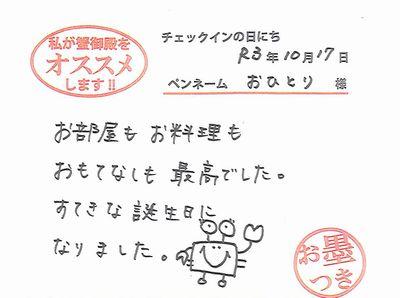 私が蟹御殿を
オススメ
します!!
チェックインの日にち
R3年10月17日
ペンネーム おひとり 様
お部屋も お料理も
おもてなしも 最高でした。
すてきな誕生日に
なりました。
お墨
つき